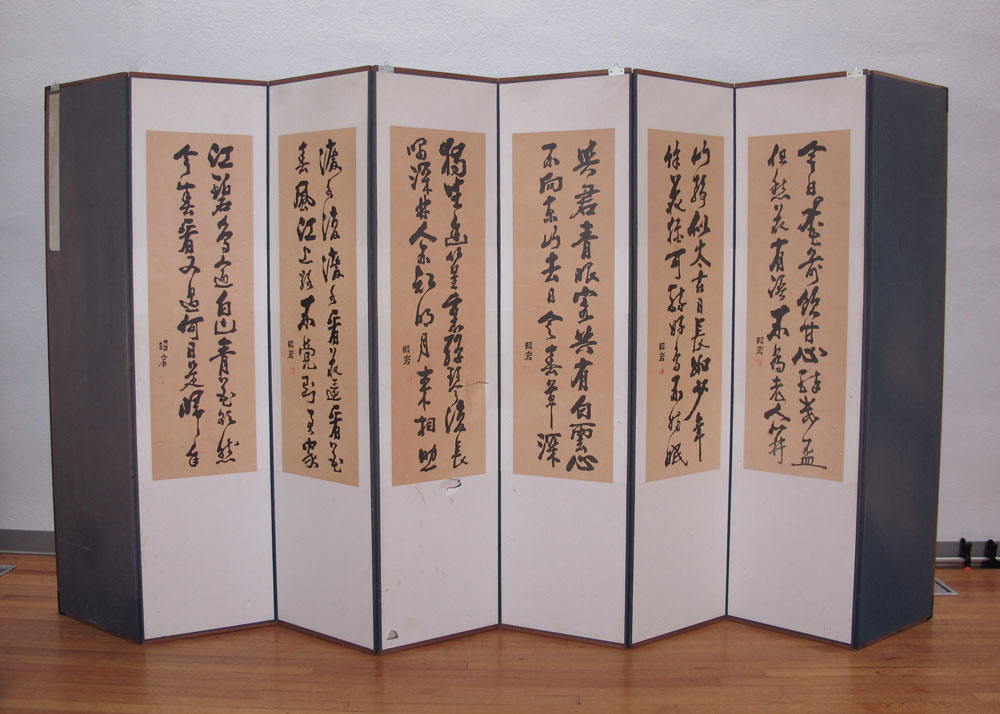 今日花前飲甘心醉數盃
但愁花有語不為老人開
昭岩
山靜似太古日長如少年
餘花猶可醉好鳥不妨眠
昭岩
與君青眼客共有白雲心
不向東山去日令春草深
昭岩
獨坐幽篁裏彈琴復長
嘯深林人不知明月來相照
昭岩
渡水復渡水看花還看花
春風江上路不覺到君家
昭岩
江碧鳥逾白山青花欲然
今春看又過何日是歸年
昭岩